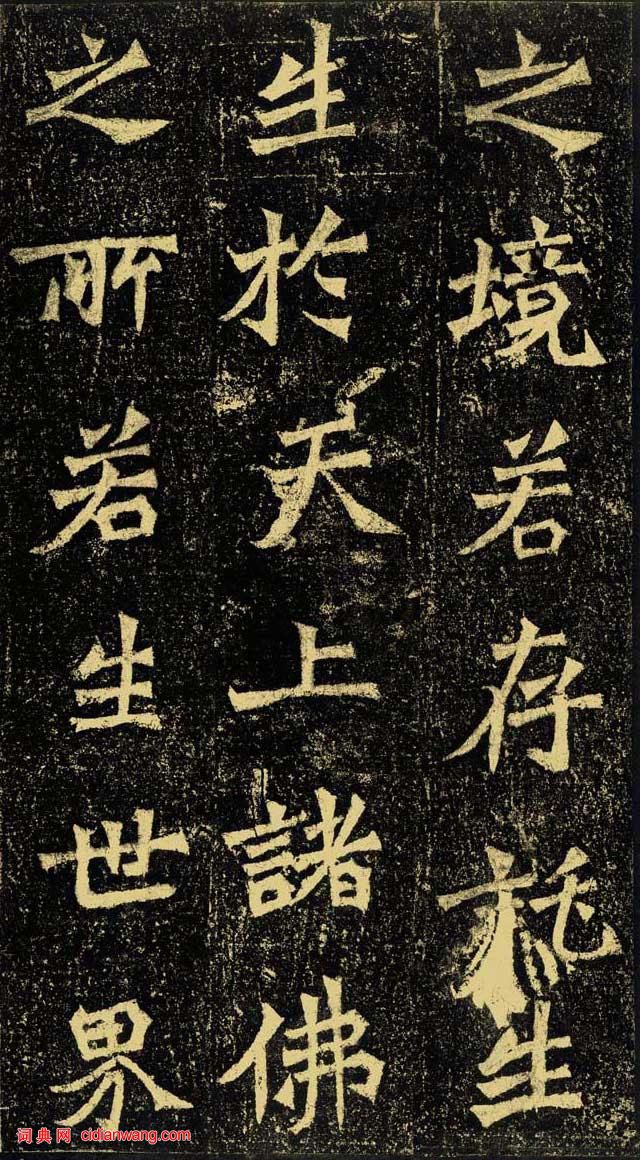 之境若存託生
生於天上諸佛
之所若生世界
词典网 cidianwang.com